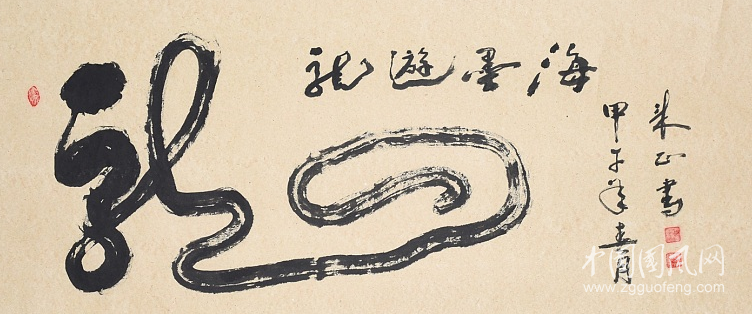 龍
海墨遊龍
正書
甲午年
中国国风网
www.zgguofeng.com